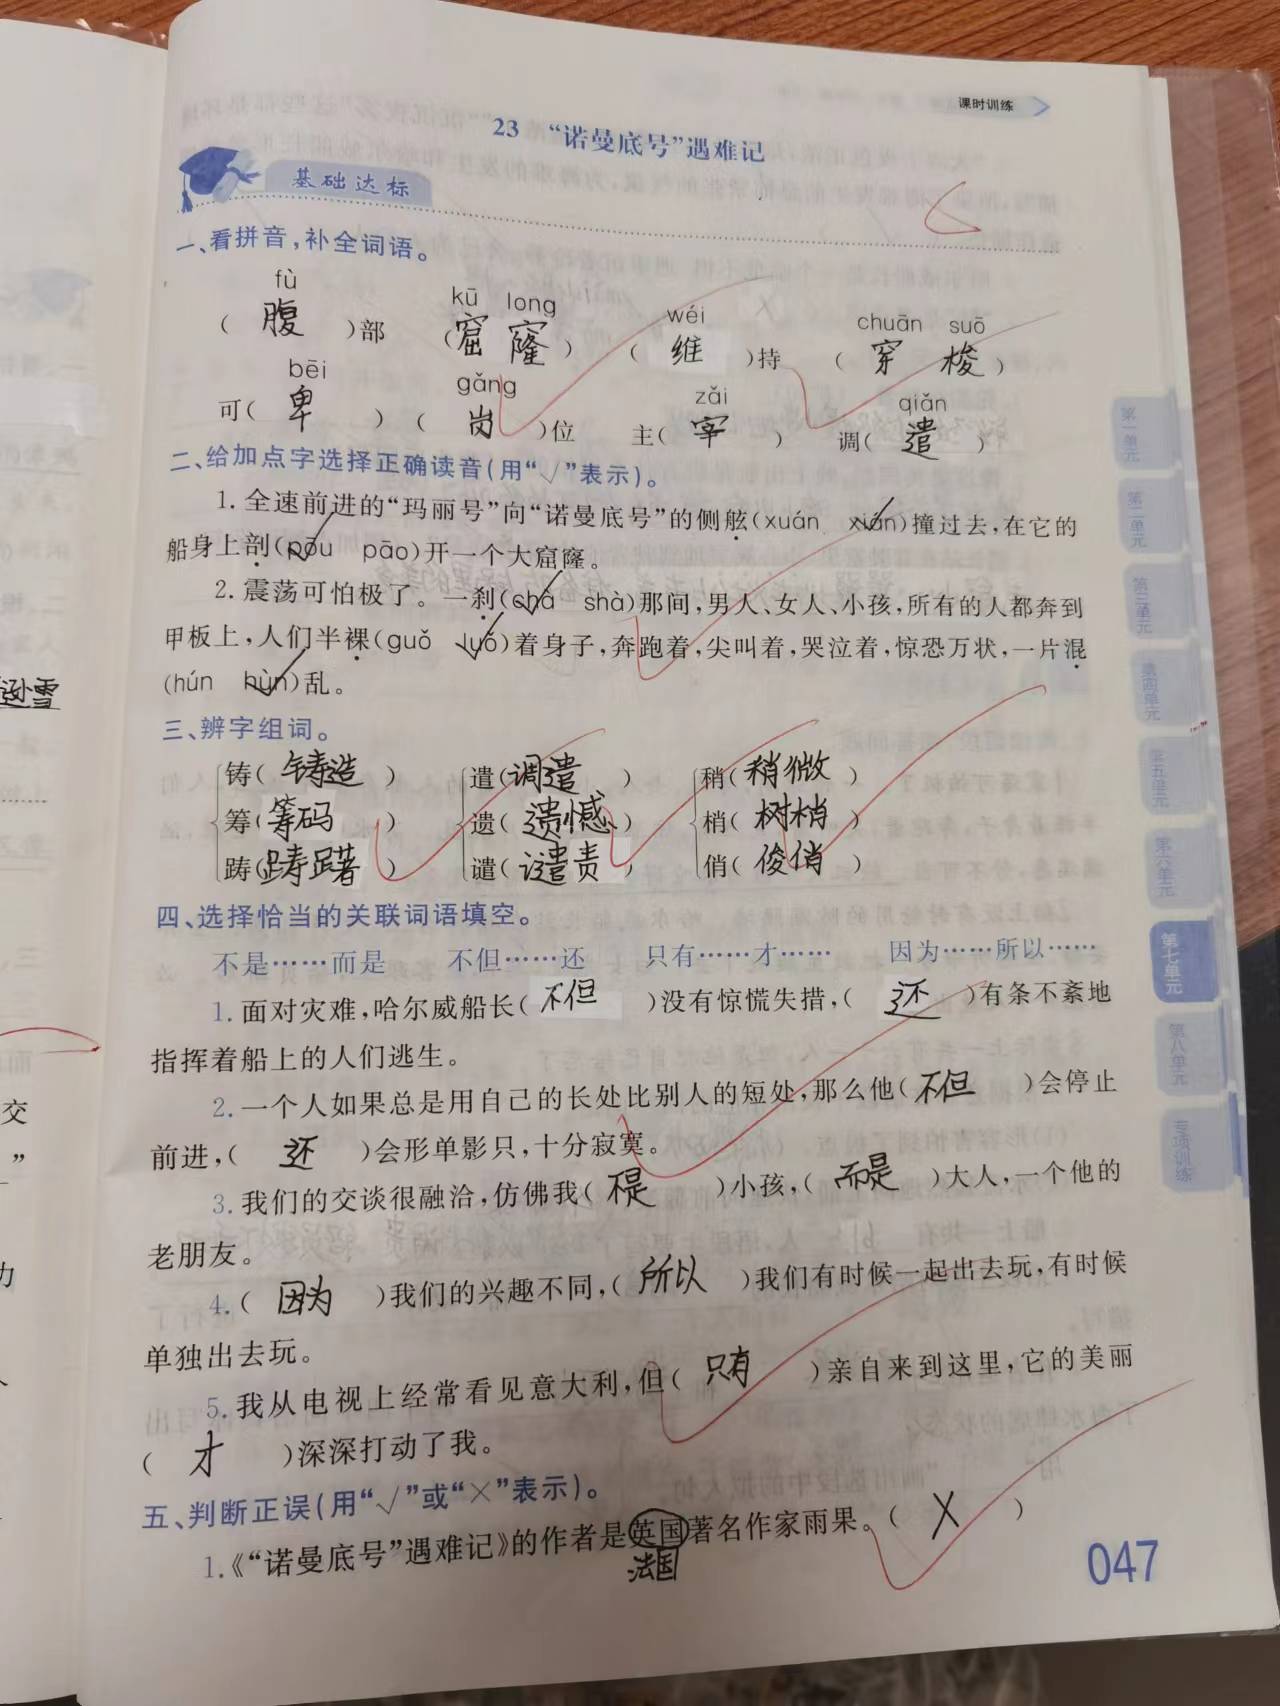 课时训练
23 “诺曼底号”遇难记
基础达标
一、看拼音,补全词语。
fù kū long wéi chuān suō
( 腹 )部 ( 窟窿 ) ( 维 )持 ( 穿梭 )
bēi gǎng zǎi qiǎn
可( 卑 ) ( 岗 )位 主( 宰 ) 调( 遣 )
二、给加点字选择正确读音(用“√”表示)。
1. 全速前进的“玛丽号”向“诺曼底号”的侧舷(xuán xián)撞过去,在它的
船身上剖(pōu pāo)开一个大窟窿。
2. 震荡可怕极了。一刹(chà shà)那间,男人、女人、小孩,所有的人都奔到
甲板上,人们半裸(guǒ luǒ)着身子,奔跑着,尖叫着,哭泣着,惊恐万状,一片混
(hún hùn)乱。
三、辨字组词。
铸( 铸造 ) 遣( 调遣 ) 稍( 稍微 )
筹( 筹码 ) 遗( 遗憾 ) 梢( 树梢 )
踌( 踌躇 ) 谴( 谴责 ) 俏( 俊俏 )
四、选择恰当的关联词语填空。
不是……而是 不但……还 只有……才…… 因为……所以……
1. 面对灾难,哈尔威船长( 不但 )没有惊慌失措,( 还 )有条不紊地
指挥着船上的人们逃生。
2. 一个人如果总是用自己的长处比别人的短处,那么他( 不但 )会停止
前进,( 还 )会形单影只,十分寂寞。
3. 我们的交谈很融洽,仿佛我( 不是 )小孩,( 而是 )大人,一个他的
老朋友。
4. ( 因为 )我们的兴趣不同,( 所以 )我们有时候一起出去玩,有时候
单独出去玩。
5. 我从电视上经常看见意大利,但( 只有 )亲自来到这里,它的美丽
( 才 )深深打动了我。
五、判断正误(用“√”或“×”表示)。
1.《“诺曼底号”遇难记》的作者是英国著名作家雨果。( X )
法国
047
第一单元
第二单元
第三单元
第四单元
第五单元
第六单元
第七单元
第八单元
专项训练